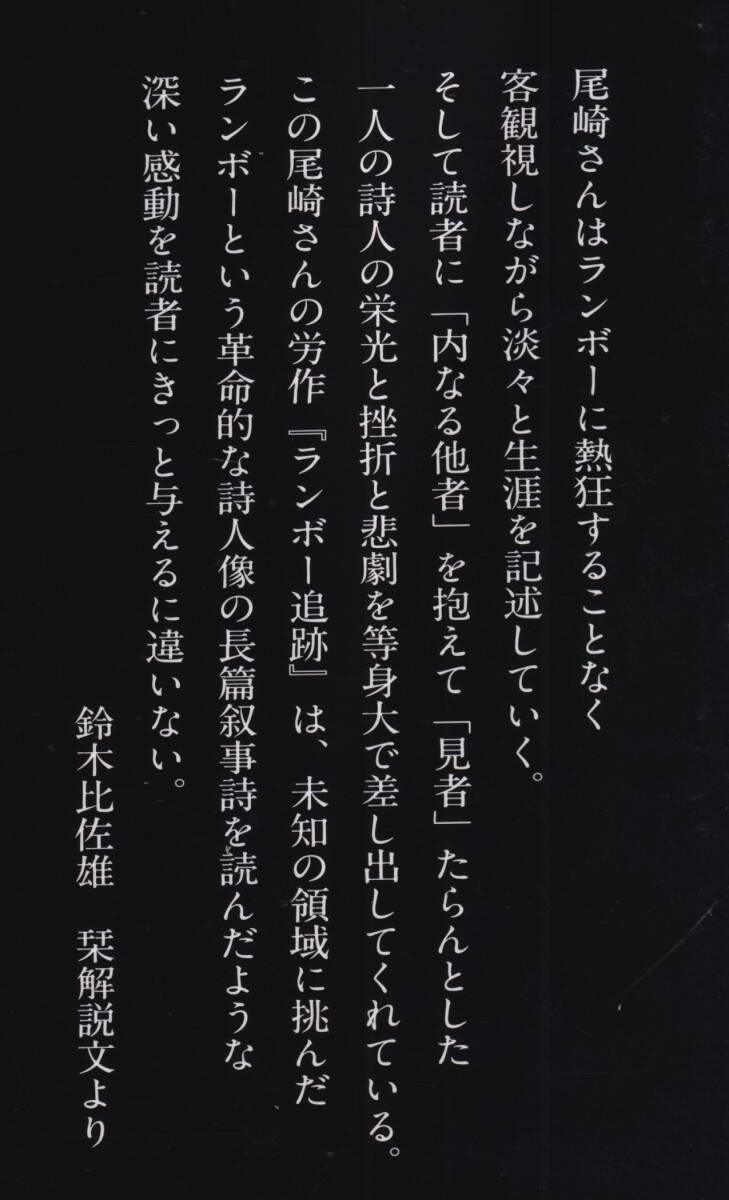 尾崎さんはランボーに熱狂することなく
客観視しながら淡々と生涯を記述していく。
そして読者に「内なる他者」を抱えて「見者」たらんとした
一人の詩人の栄光と挫折と悲劇を等身大で差し出してくれている。
この尾崎さんの労作『ランボー追跡』は、未知の領域に挑んだ
ランボーという革命的な詩人像の長篇叙事詩を読んだような
深い感動を読者にきっと与えるに違いない。
鈴木比佐雄　栞解説文より